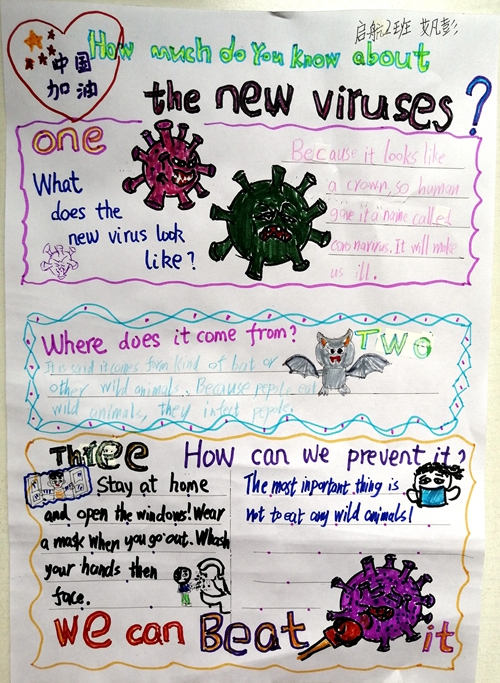 中国
加油
启航2班
How much do You know about
the new viruses?
one
What
does the
new virus look
like?
Because it looks like
a crown, so human
gave it a name called
coronavirus. It will make
us ill.
Where does it come from?
TWO
It is said it comes form kind of bat or
other wild animals. Because pepole eat
wild animals, they infect pepole.
Three
How can we prevent it?
Stay at home
and open the windows! Wear
a mask when you go out. Whash
your hands then
face.
The most inportant thing is
not to eat any wild animals!
We can Beat it